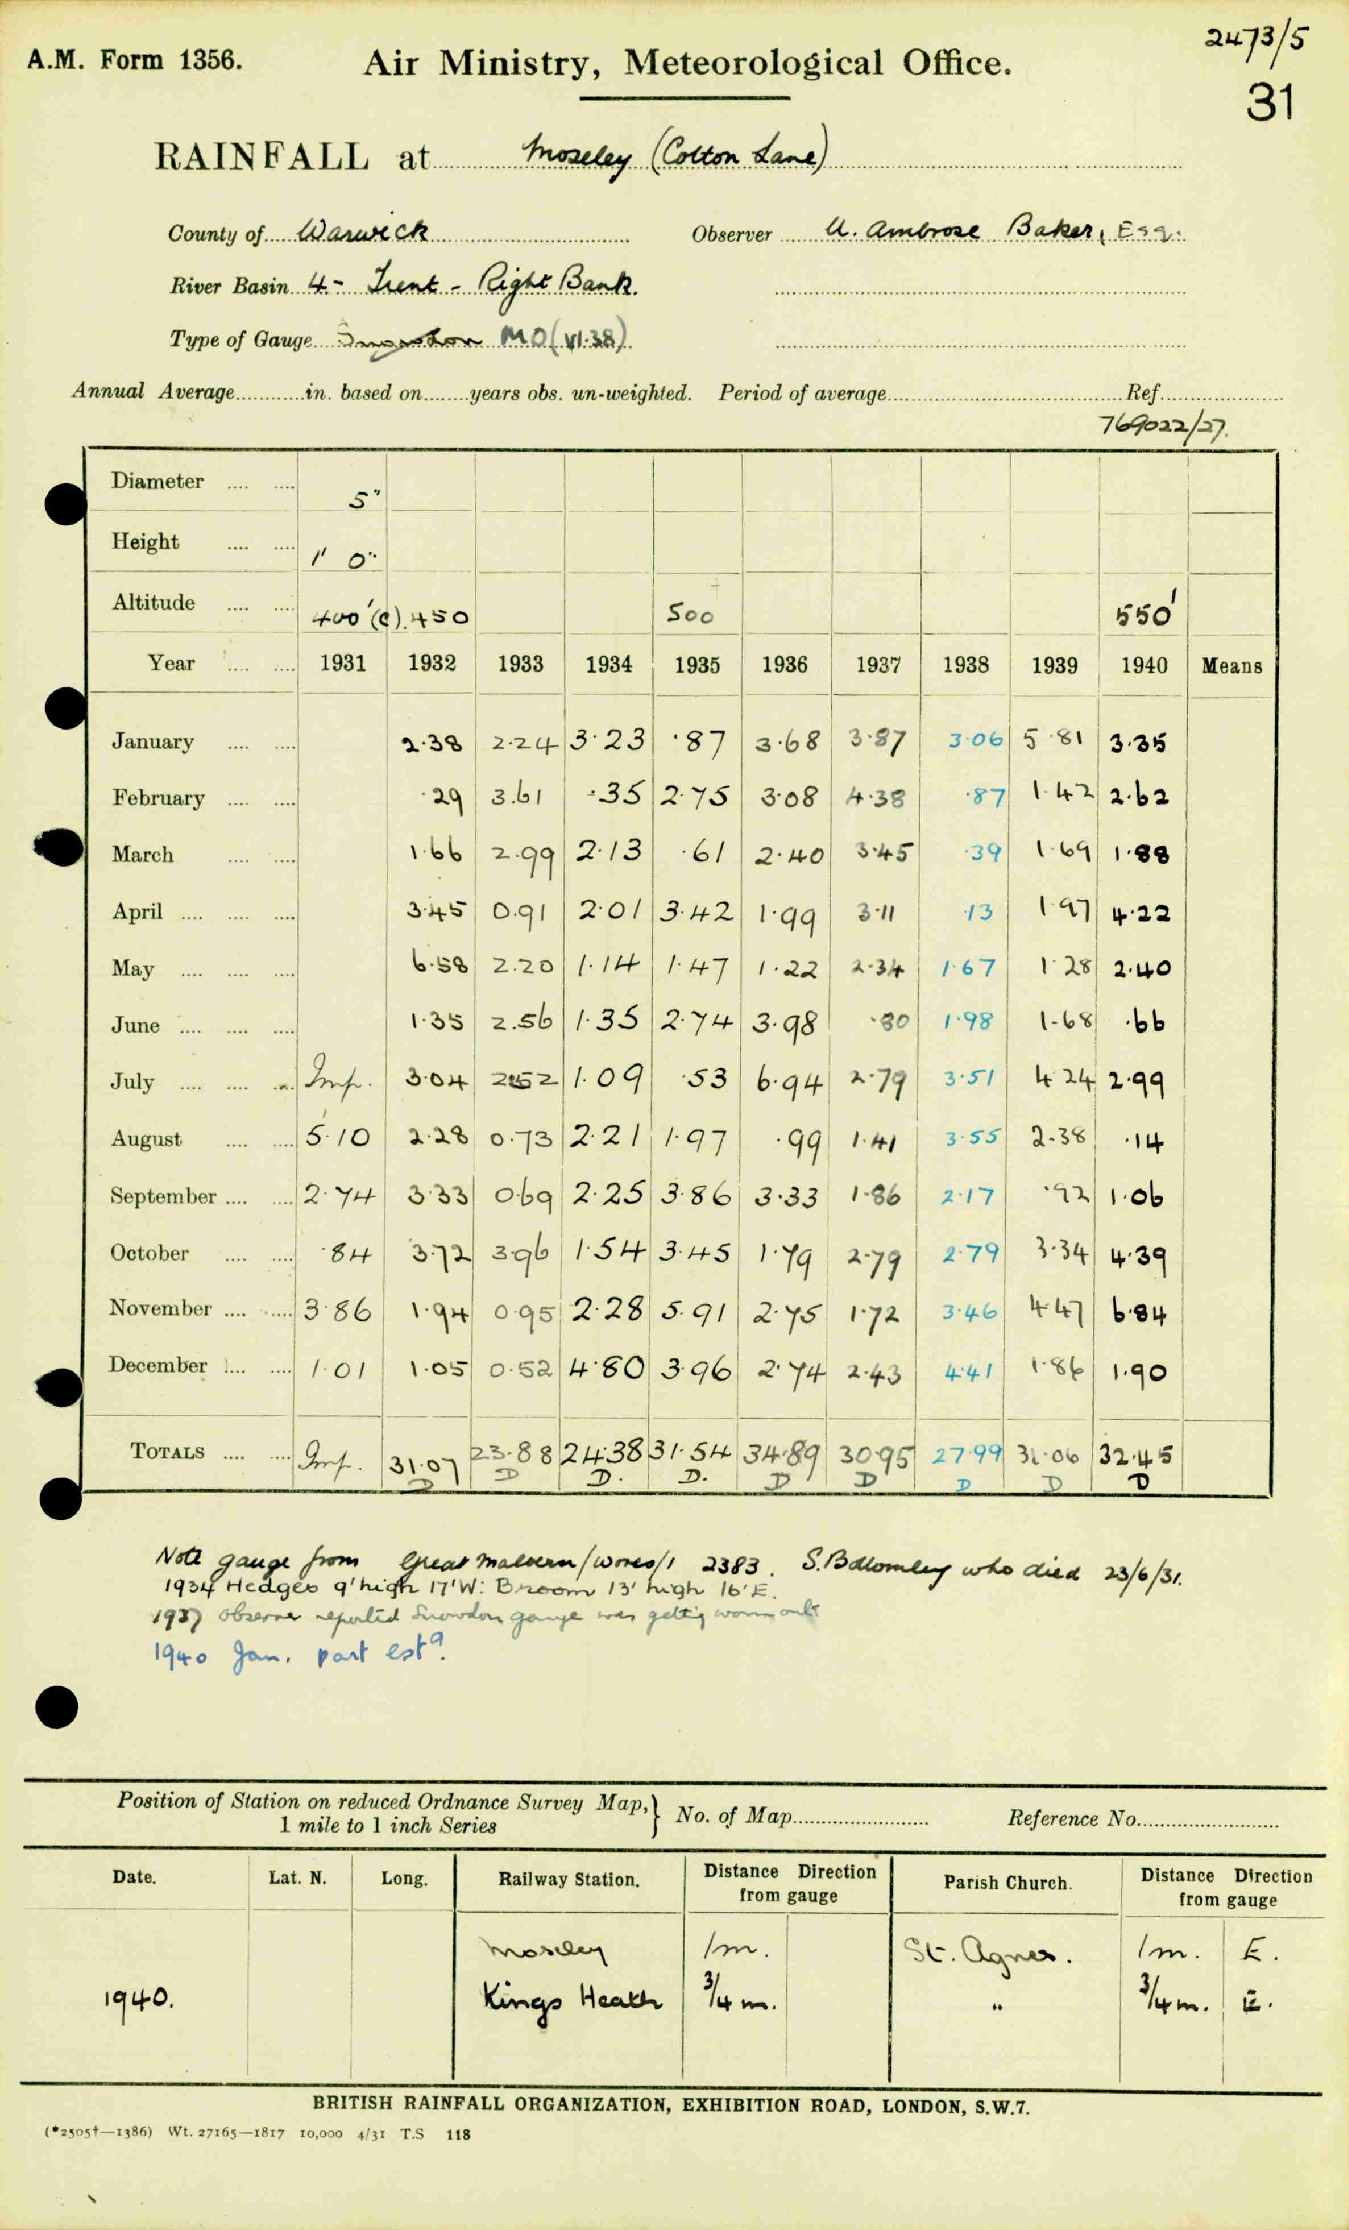 2473/5
A.M. Form 1356. Air Ministry, Meteorological Office.
31
RAINFALL at Moseley (Cotton Lane)
County of Warwick Observer A. Ambrose Baker, Esq.
River Basin 4- Trent - Right Bank.
Type of Gauge Snowdon MO (VI.38)
Annual Average............in. based on........years obs. un-weighted. Period of average........................Ref.....................
769022/27.
Diameter 5"
Height 1' 0"
Altitude 400'(c). 450 500 550'
Year 1931 1932 1933 1934 1935 1936 1937 1938 1939 1940 Means
January 2.38 2.24 3.23 .87 3.68 3.87 3.06 5.81 3.35
February .29 3.61 .35 2.75 3.08 4.38 .87 1.42 2.62
March 1.66 2.99 2.13 .61 2.40 3.45 .39 1.69 1.88
April 3.45 0.91 2.01 3.42 1.99 3.11 .13 1.97 4.22
May 6.58 2.20 1.14 1.47 1.22 2.34 1.67 1.28 2.40
June 1.35 2.56 1.35 2.74 3.98 .80 1.98 1.68 .66
July Imp. 3.04 2.52 1.09 .53 6.94 2.79 3.51 4.24 2.99
August 5.10 2.28 0.73 2.21 1.97 .99 1.41 3.55 2.38 .14
September 2.74 3.33 0.69 2.25 3.86 3.33 1.86 2.17 .92 1.06
October .84 3.72 3.96 1.54 3.45 1.79 2.79 2.79 3.34 4.39
November 3.86 1.94 0.95 2.28 5.91 2.75 1.72 3.46 4.47 6.84
December 1.01 1.05 0.52 4.80 3.96 2.74 2.43 4.41 1.86 1.90
TOTALS Imp. 31.07 23.88 24.38 31.54 34.89 30.95 27.99 31.06 32.45
D D D. D. D D D D D
Note gauge from Great Malvern/Worcs/1 2383. S. Bottomley who died 23/6/31.
1934 Hedges 9' high 17'W: Broom 13' high 16'E.
1937 observer reported Snowdon gauge was gettig worn out
1940 Jan. part estd.
Position of Station on reduced Ordnance Survey Map, } No. of Map........................ Reference No.........................
1 mile to 1 inch Series
Date. Lat. N. Long. Railway Station. Distance Direction from gauge Parish Church. Distance Direction from gauge
Moseley 1m. St. Agnes. 1m. E.
1940. Kings Heath 3/4 m. " 3/4 m. E.
BRITISH RAINFALL ORGANIZATION, EXHIBITION ROAD, LONDON, S.W.7.
(*2505†—1386) Wt. 27165—1817 10,000 4/31 T.S 118